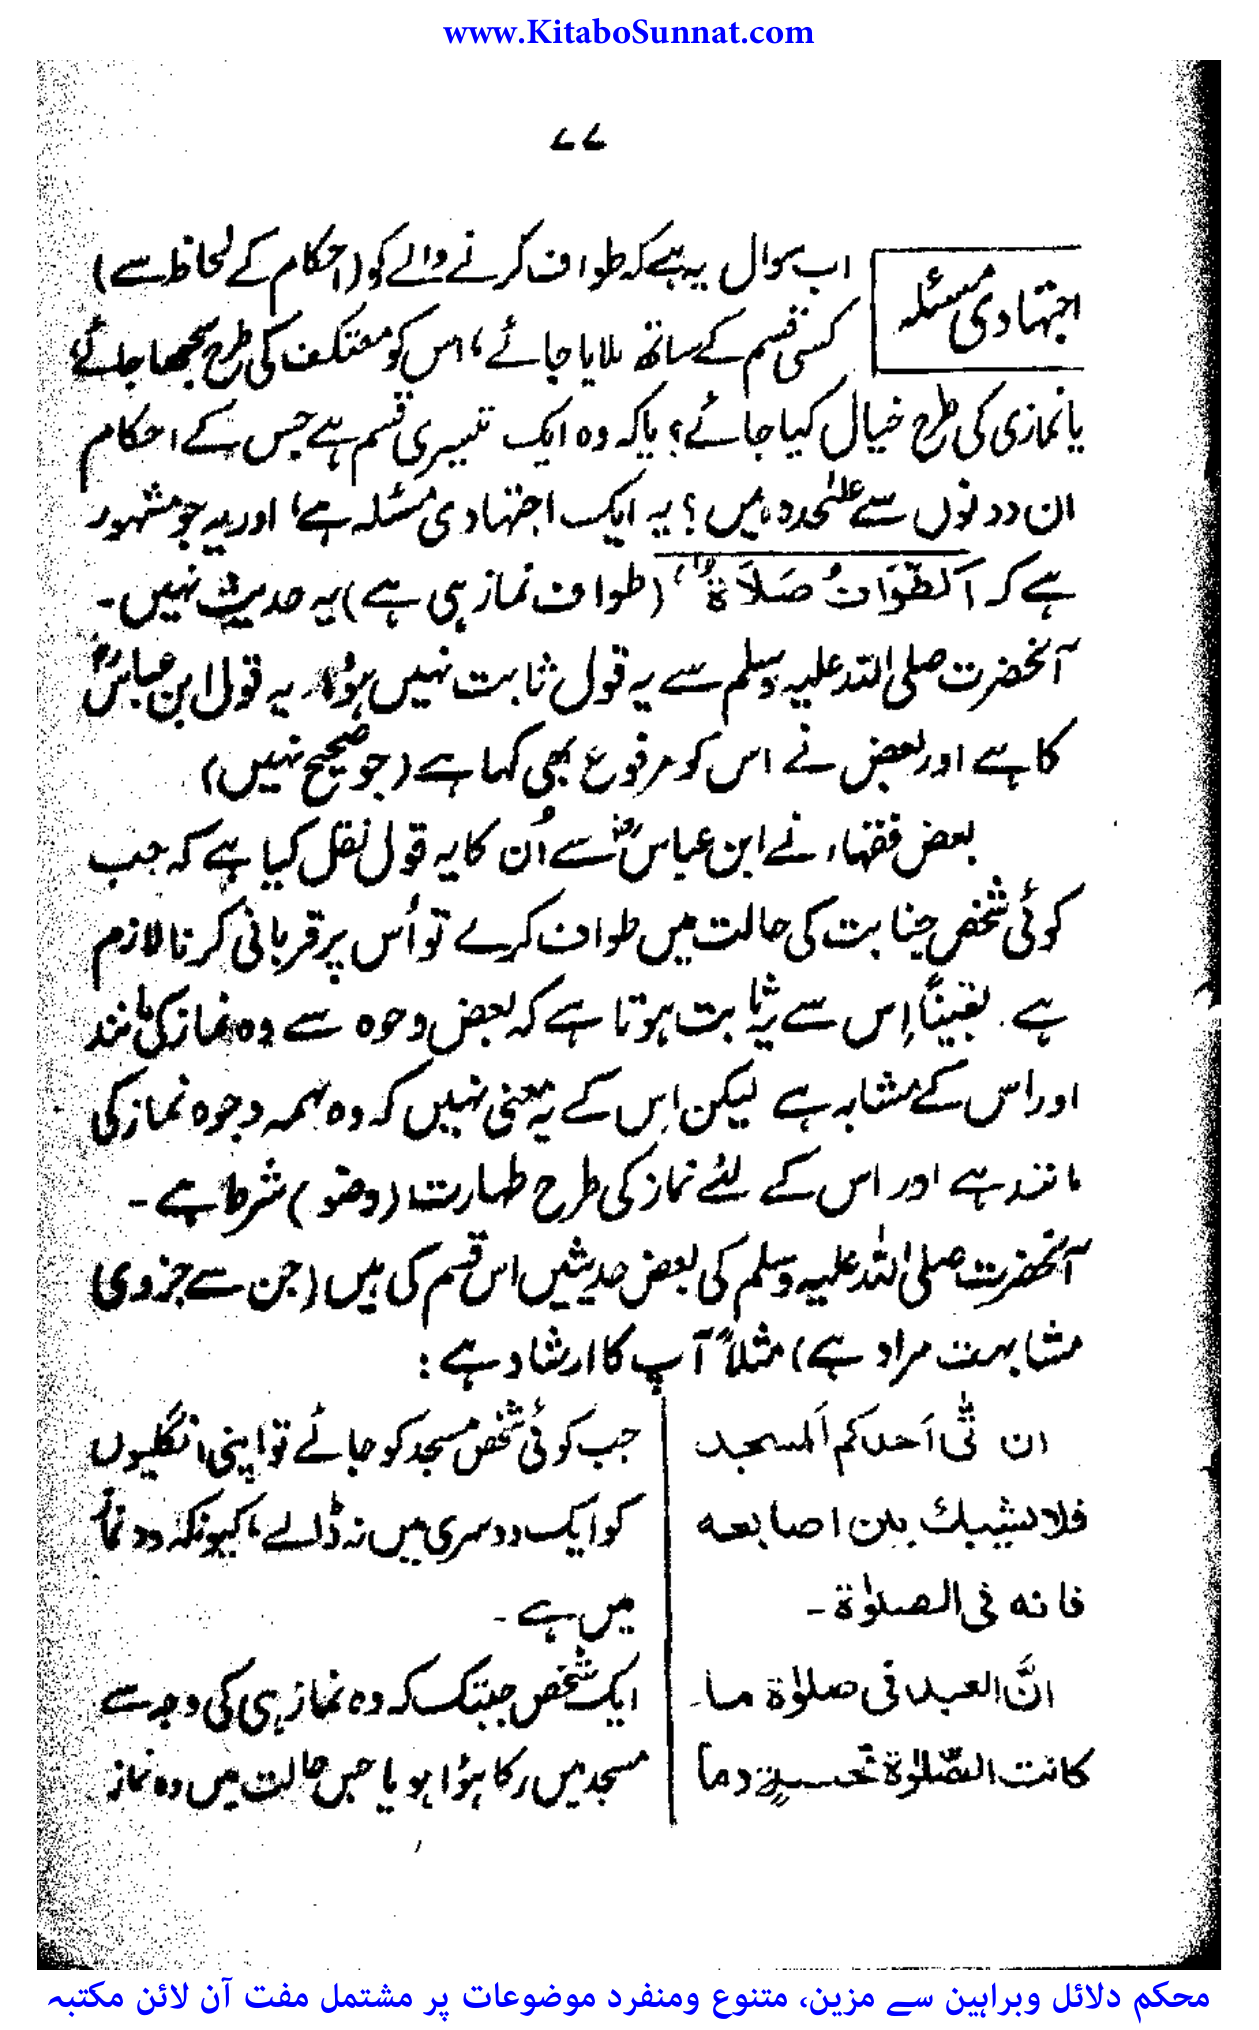 www.KitaboSunnat.com
۷۷
اجتہادی مسئلہ
اب سوال یہ ہے کہ طواف کرنے والے کو (احکام کے لحاظ سے)
کسی قسم کے ساتھ ملایا جائے، اس کو معتکف کی طرح سمجھا جائے
یا نمازی کی طرح خیال کیا جائے؟ یا کہ وہ ایک تیسری قسم ہے جس کے احکام
ان دونوں سے علیٰحدہ ہیں؟ یہ ایک اجتہادی مسئلہ ہے، اور یہ جو مشہور
ہے کہ اَلطَّوَافُ صَلَاۃٌ، (طواف نماز ہی ہے) یہ حدیث نہیں۔
آنحضرت صلی اللہ علیہ وسلم سے یہ قول ثابت نہیں ہوُا۔ یہ قول ابن عباسؓ
کا ہے اور بعض نے اس کو مرفوع بھی کہا ہے (جو صحیح نہیں)
بعض فقہاء نے ابن عباسؓ سے اُن کا یہ قول نقل کیا ہے کہ جب
کوئی شخص جنابت کی حالت میں طواف کرے تو اُس پر قربانی کرنا لازم
ہے۔ یقیناً اِس سے یہ ثابت ہوتا ہے کہ بعض وجوہ سے وہ نماز کی مانند
اور اس کے مشابہ ہے لیکن اِس کے یہ معنی نہیں کہ وہ ہمہ وجوہ نماز کی
مانند ہے اور اس کے لئے نماز کی طرح طہارت (وضو) شرط ہے۔
آنحضرت صلی اللہ علیہ وسلم کی بعض حدیثیں اس قسم کی ہیں (جن سے جزوی
مشابہت مراد ہے) مثلاً آپ کا ارشاد ہے:
ان تٰی اَحدکم اَلمسجد
فلا یشبک بین اصابعہ
فانہ فی الصلوٰۃ۔
انَّ العبد فی صلوٰۃ ما
کانت الصَّلوٰۃ تحسبہ وما
جب کوئی شخص مسجد کو جائے تو اپنی انگلیوں
کو ایک دوسری میں نہ ڈالے، کیونکہ وہ نماز
میں ہے۔
ایک شخص جبتک کہ وہ نماز ہی کی وجہ سے
مسجد میں رکا ہوُا ہو یا جس حالت میں وہ نماز
محکم دلائل وبراہین سے مزین، متنوع ومنفرد موضوعات پر مشتمل مفت آن لائن مکتبہ